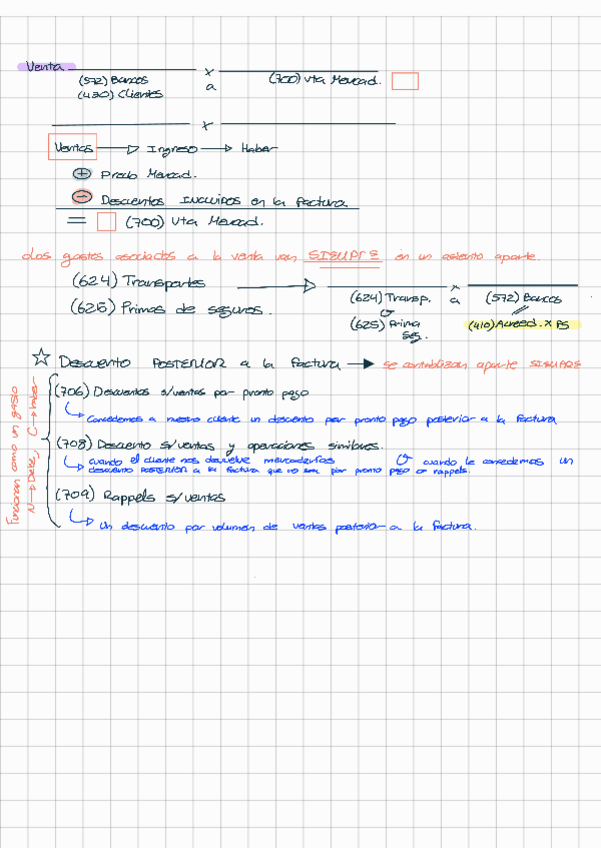 Venta
(572) Bancos x (700) Vta Mercad.
(430) Clientes a
x
Ventas → Ingreso → Haber
+ Precio Mercad.
- Descuentos INCLUIDOS en la factura
= (700) Vta Mercad.
Los gastos asociados a la venta van SIEMPRE en un asiento aparte.
(624) Transportes → (624) Transp. x a (572) Bancos
(625) Primas de seguros. o (625) Prima Seg. // (410) Acreed. x PS
☆ Descuento POSTERIOR a la factura → se contabilizan aparte SIEMPRE
Funcionan como un gasto
N → Debe, C → Haber
(706) Descuentos s/ventas por pronto pago
↳ Concedemos a nuestro cliente un descuento por pronto pago posterior a la factura
(708) Descuento s/ventas y operaciones similares.
↳ cuando el cliente nos devuelve mercaderías o cuando le concedemos un
descuento POSTERIOR a la factura que no sea por pronto pago o rappels.
(709) Rappels s/ventas
↳ Un descuento por volumen de ventas posterior a la factura.